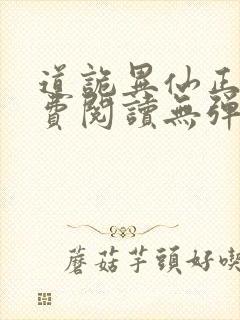 道詭異仙正
費閱讀無彈
蘑菇芋頭好喫